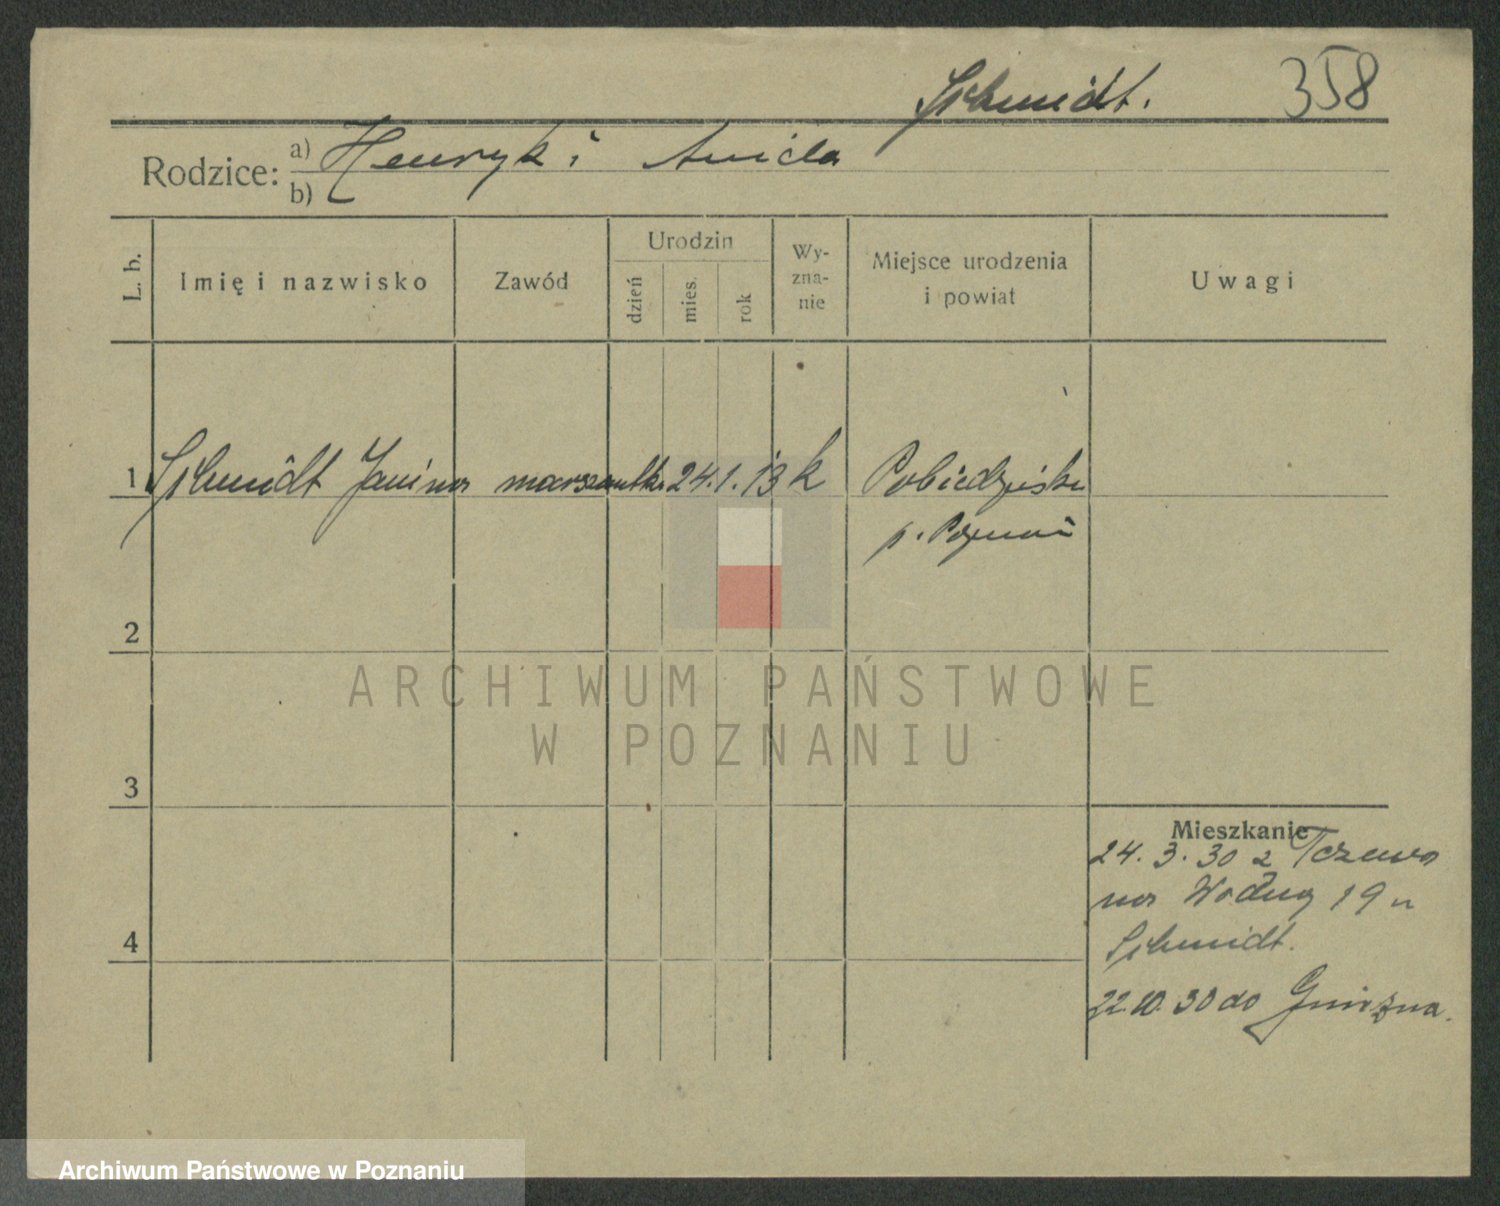 Schmidt. 358
Rodzice: a) Henryk i Aniela
b)
L. b. Imię i nazwisko Zawód Urodzin dzień mies. rok Wy-zna-nie Miejsce urodzenia i powiat Uwagi
1 Schmidt Janina 24.1.13 k Pobiedziska
p. Poznań
2
ARCHIWUM PAŃSTWOWE
W POZNANIU
3
Mieszkanie
24.3.30 z Tczewa
na Wodną 19 u
4
Schmidt.
22.10.30 do Gniezna.
Archiwum Państwowe w Poznaniu